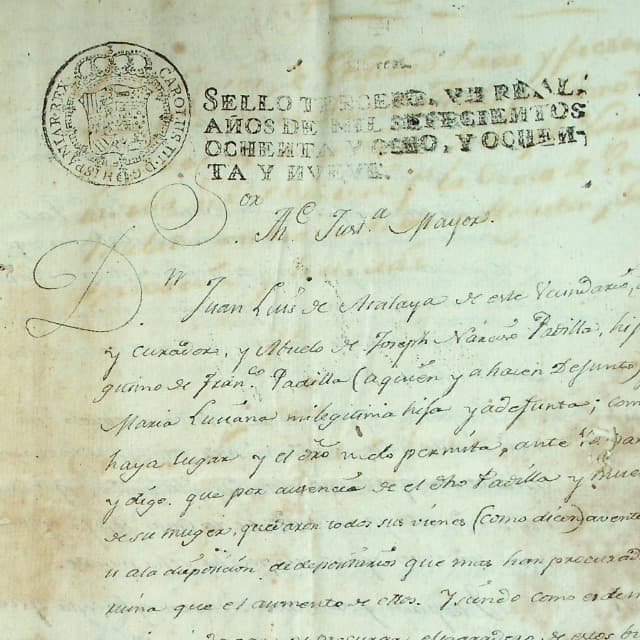 CAROLUS III D G HISPANIAR REX
SELLO TERCERO, VN REAL,
AÑOS DE MIL SETECIENTOS
OCHENTA Y OCHO, Y OCHEN-
TA Y NUEVE.
Sor
The. Justa. Mayor.
Dn. Juan Luis de Atalaya de este Vecindario,
y curador, y Abuelo de Joseph Narciso Padilla, hij
guimo de Franco. Padilla (a quien ya hacen Defunto)
Maria Luciana mi legitima hija ya defunta; com
haya lugar y el dro. me lo permita, ante
y digo. que por ausencia de el dho Padilla y mue
de su muger, quedaron todos sus vienes (como dicen) avent
u a la disposicion de depositarios que mas han procurad
ruina que el aumento de ellos. Y siendo como es de m
procurar el paradero de estos